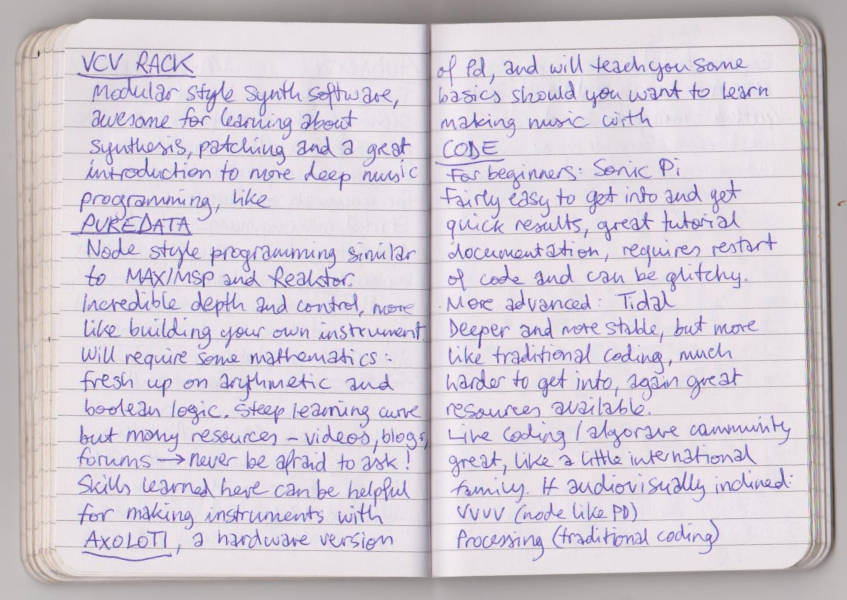 VCV RACK
Modular style synth software,
awesome for learning about
synthesis, patching and a great
introduction to more deep music
programming, like
PUREDATA
Node style programming similar
to MAX/MSP and Reaktor.
Incredible depth and control, more
like building your own instrument
Will require some mathematics:
fresh up on arythmetic and
boolean logic. Steep learning curve
but many resources - videos, blogs,
forums → never be afraid to ask!
Skills learned here can be helpful
for making instruments with
AXOLOTI, a hardware version
of Pd, and will teach you some
basics should you want to learn
making music with
CODE
For beginners: Sonic Pi
Fairly easy to get into and get
quick results, great tutorial
documentation, requires restart
of code and can be glitchy.
More advanced: Tidal
Deeper and more stable, but more
like traditional coding, much
harder to get into, again great
resources available.
Live Coding / algorave community
great, like a little international
family. If audiovisually inclined:
VVVV (node like PD)
Processing (traditional coding)